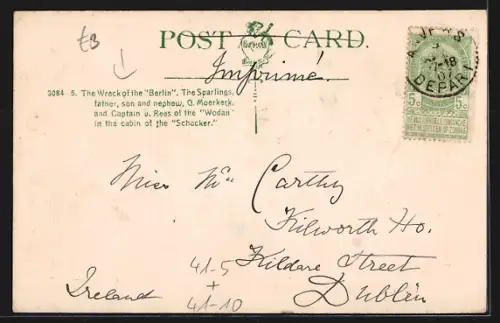 £3
POST CARD.
Imprimé
3084 - 5. The Wreck of the "Berlin". The Sparlings,
father, son and nephew, G. Moerkerk,
and Captain v. Rees of the "Wodan"
in the cabin of the "Schocker."
DEPART
5c 5c
Miss Mc Carthy
Kilworth Ho.
Kildare Street
Dublin
Ireland
41-5
+
41-10